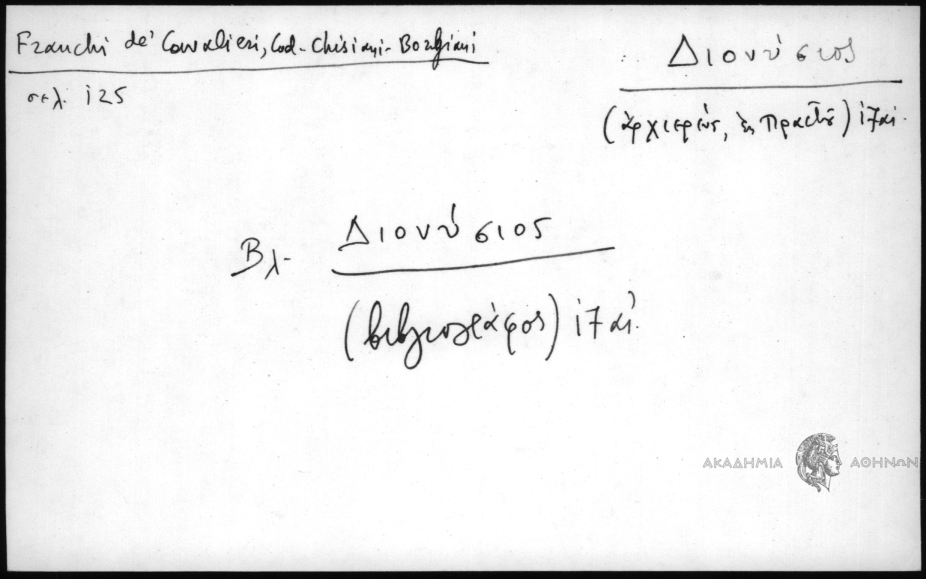 Franchi de' Cavalieri, Cod. Chisiani-Borgiani
σελ. 125
Διονύσιος
(ἀρχιερεύς, ἐκ ) 17 αἰ.
Βλ. Διονύσιος
(βιβλιογράφος) 17 αἰ.
ΑΚΑΔΗΜΙΑ ΑΘΗΝΩΝ